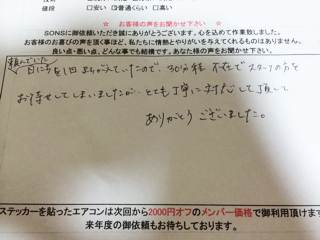 値段 □安い □普通くらい □高い
☆ お客様の声をお聞かせ下さい ☆
SONSに御依頼いただき誠にありがとうございます。心を込めて作業致しました。
お客様のお喜びの声を頂く事ほど、私たちに情熱とやりがいを与えてくれるものはありません。
良い点・悪い点、どんな事でも結構です。あなた様の声をお聞かせ下さい。
頼んでいた
日にちを1回まちがえていたので、30分程不在でスタッフの方を
お待せしてしまいましたが、とても丁寧に対応して頂いて
ありがとうございました。
ステッカーを貼ったエアコンは次回から2000円オフのメンバー価格で御利用頂けます
来年度の御依頼もお待ちしております。